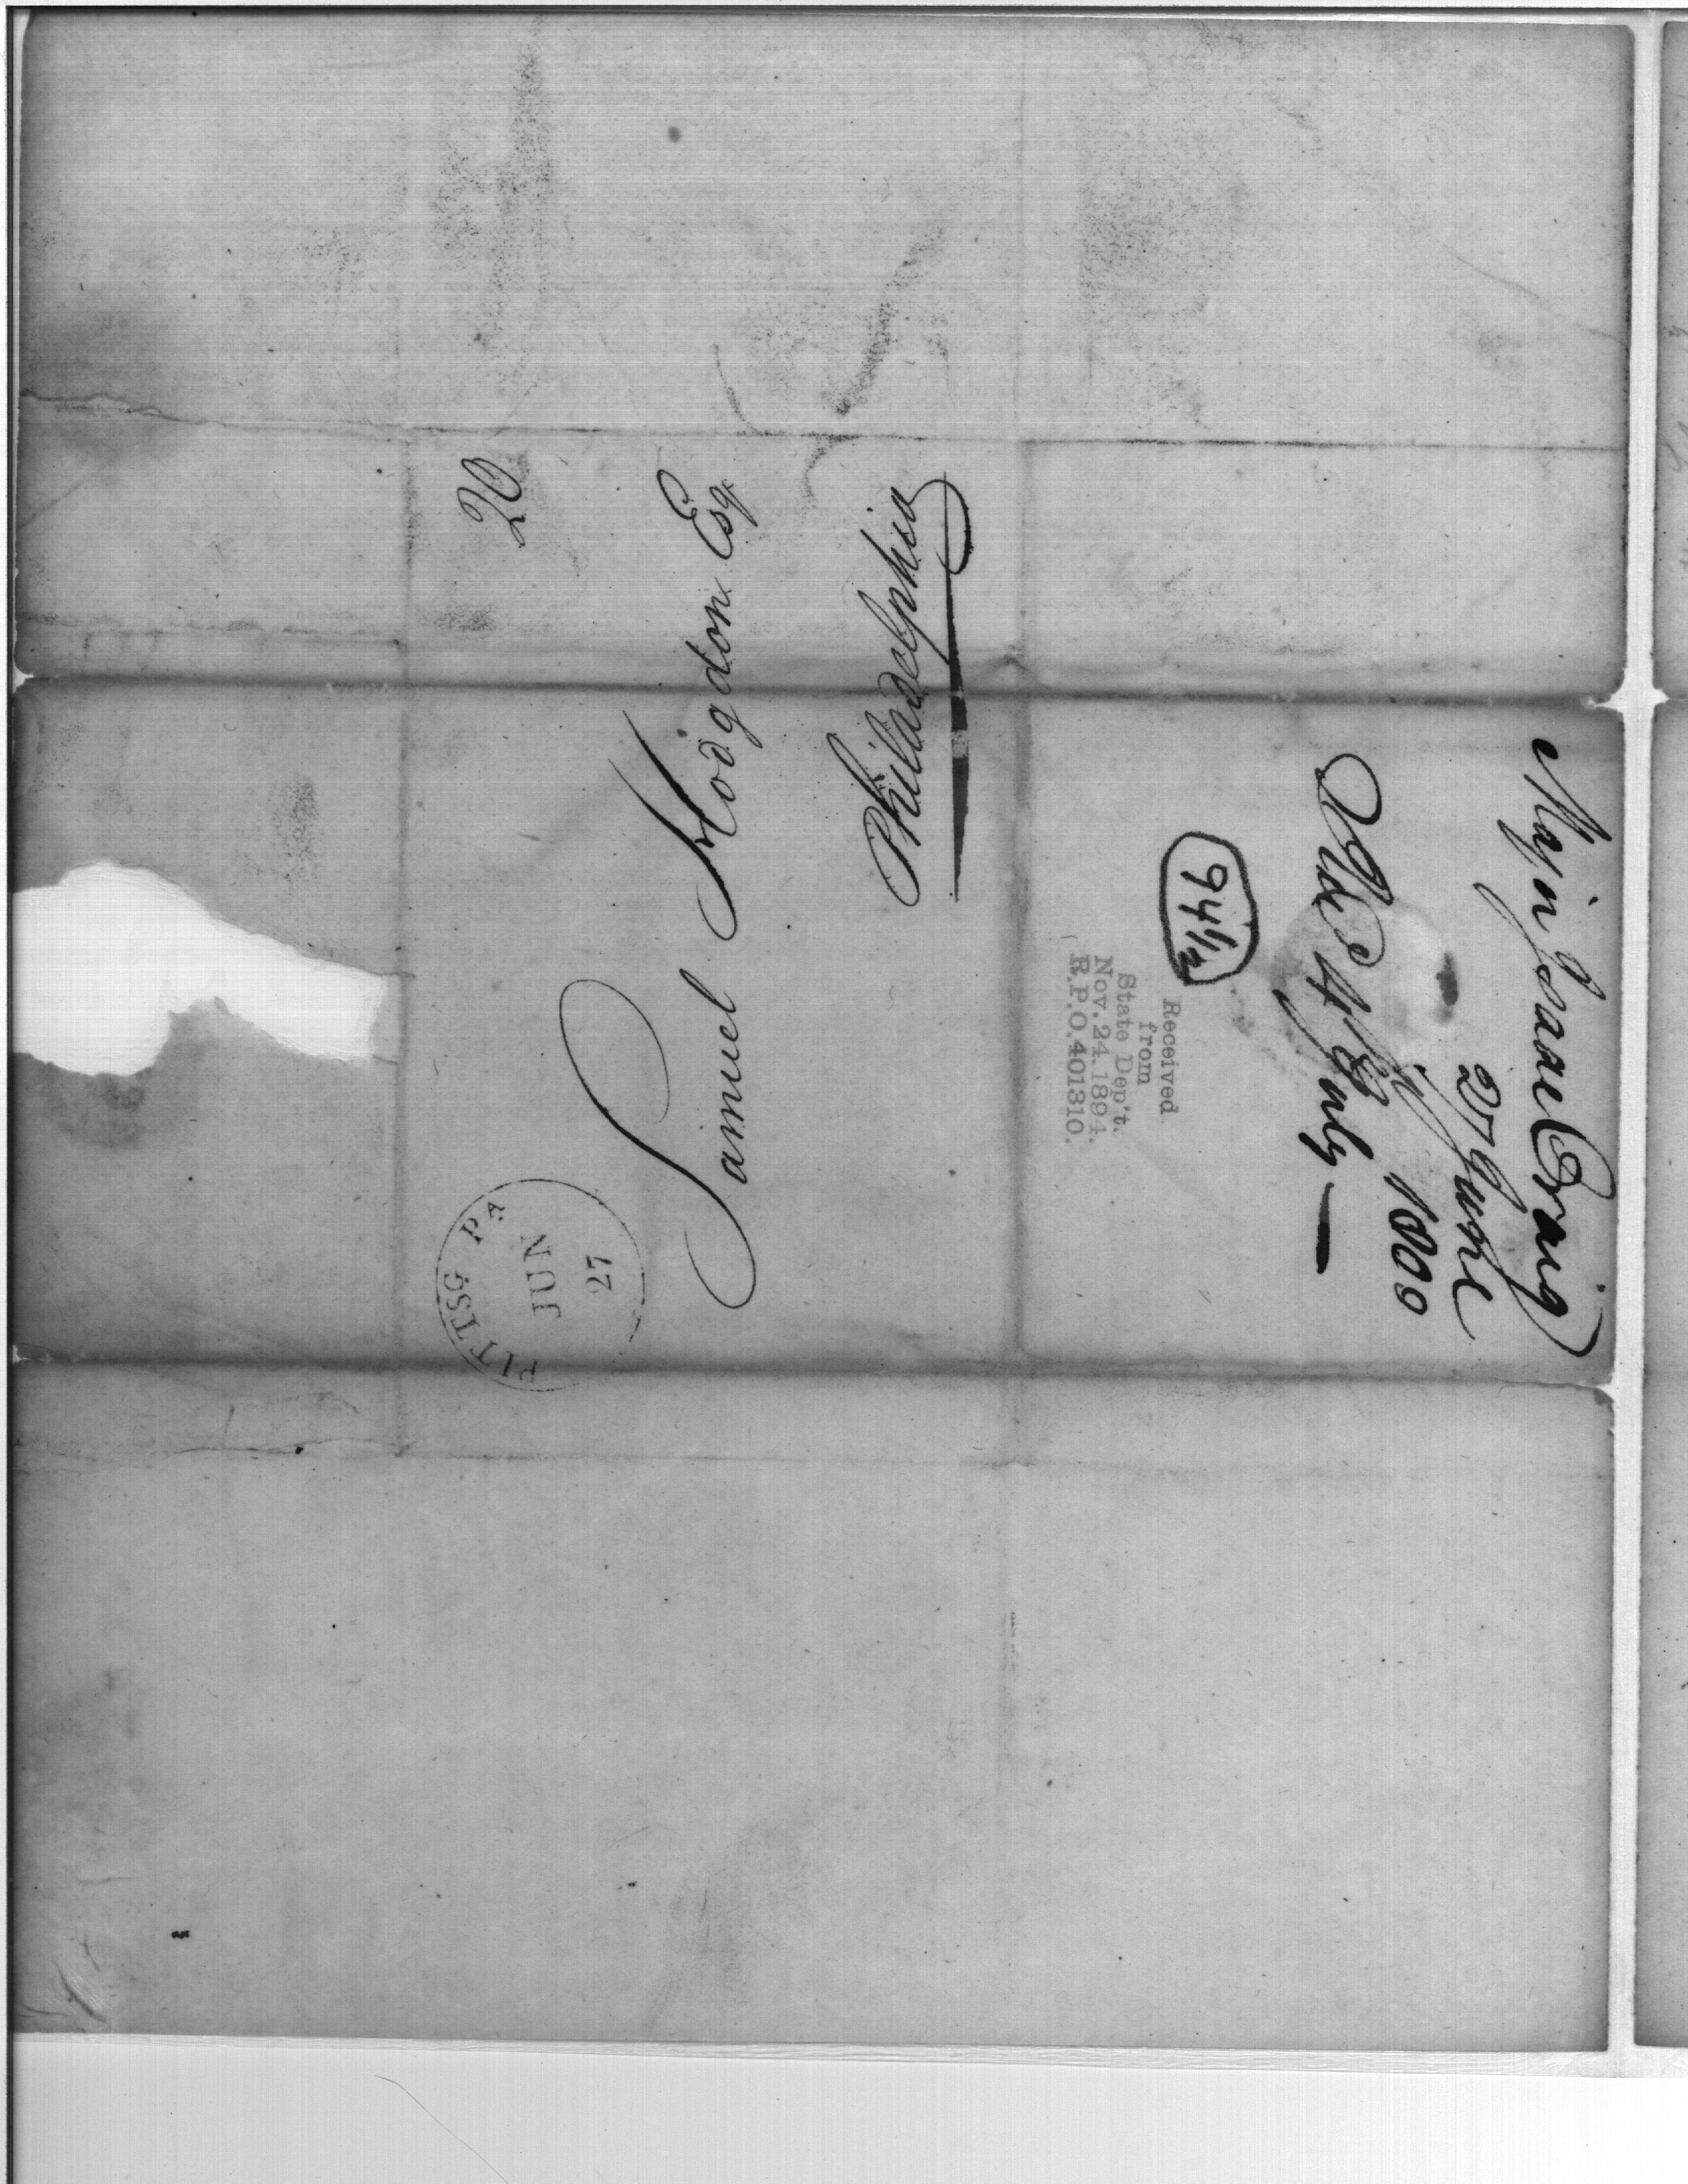 20
Samuel Hodgdon Esqr.
Philadelphia
PITTSG PA
JUN
27
Major Isaac Craig
27 June
1800
94 1/2
Received
from
State Dep't.
Nov. 24. 1894.
R.P.O. 401310.